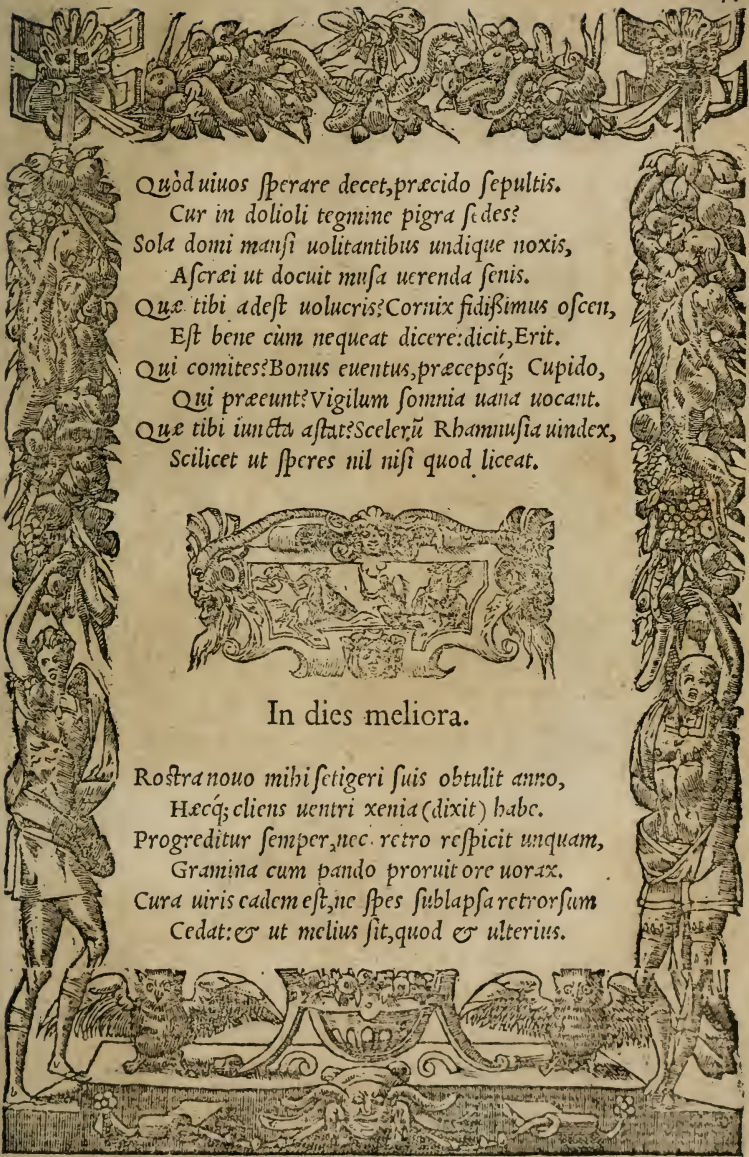 Quòd uiuos ſperare decet,præcido ſepultis.
Cur in dolioli tegmine pigra ſedes?
Sola domi manſi uolitantibus undique noxis,
Aſcræi ut docuit muſa uerenda ſenis.
Quæ tibi adeſt uolucris?Cornix fidißimus oſcen,
Eſt bene cùm nequeat dicere:dicit,Erit.
Qui comites?Bonus euentus,præcepsq́; Cupido,
Qui præeunt?Vigilum ſomnia uana uocant.
Quæ tibi iuncta aſtat?Scelerũ Rhamnuſia uindex,
Scilicet ut ſperes nil niſi quod liceat.
In dies meliora.
Roſtra nouo mihi ſetigeri ſuis obtulit anno,
Hæcq́; cliens uentri xenia (dixit) habe.
Progreditur ſemper,nec retro reſpicit unquam,
Gramina cum pando proruit ore uorax.
Cura uiris eadem eſt,ne ſpes ſublapſa retrorſum
Cedat:& ut melius ſit,quod & ulterius.